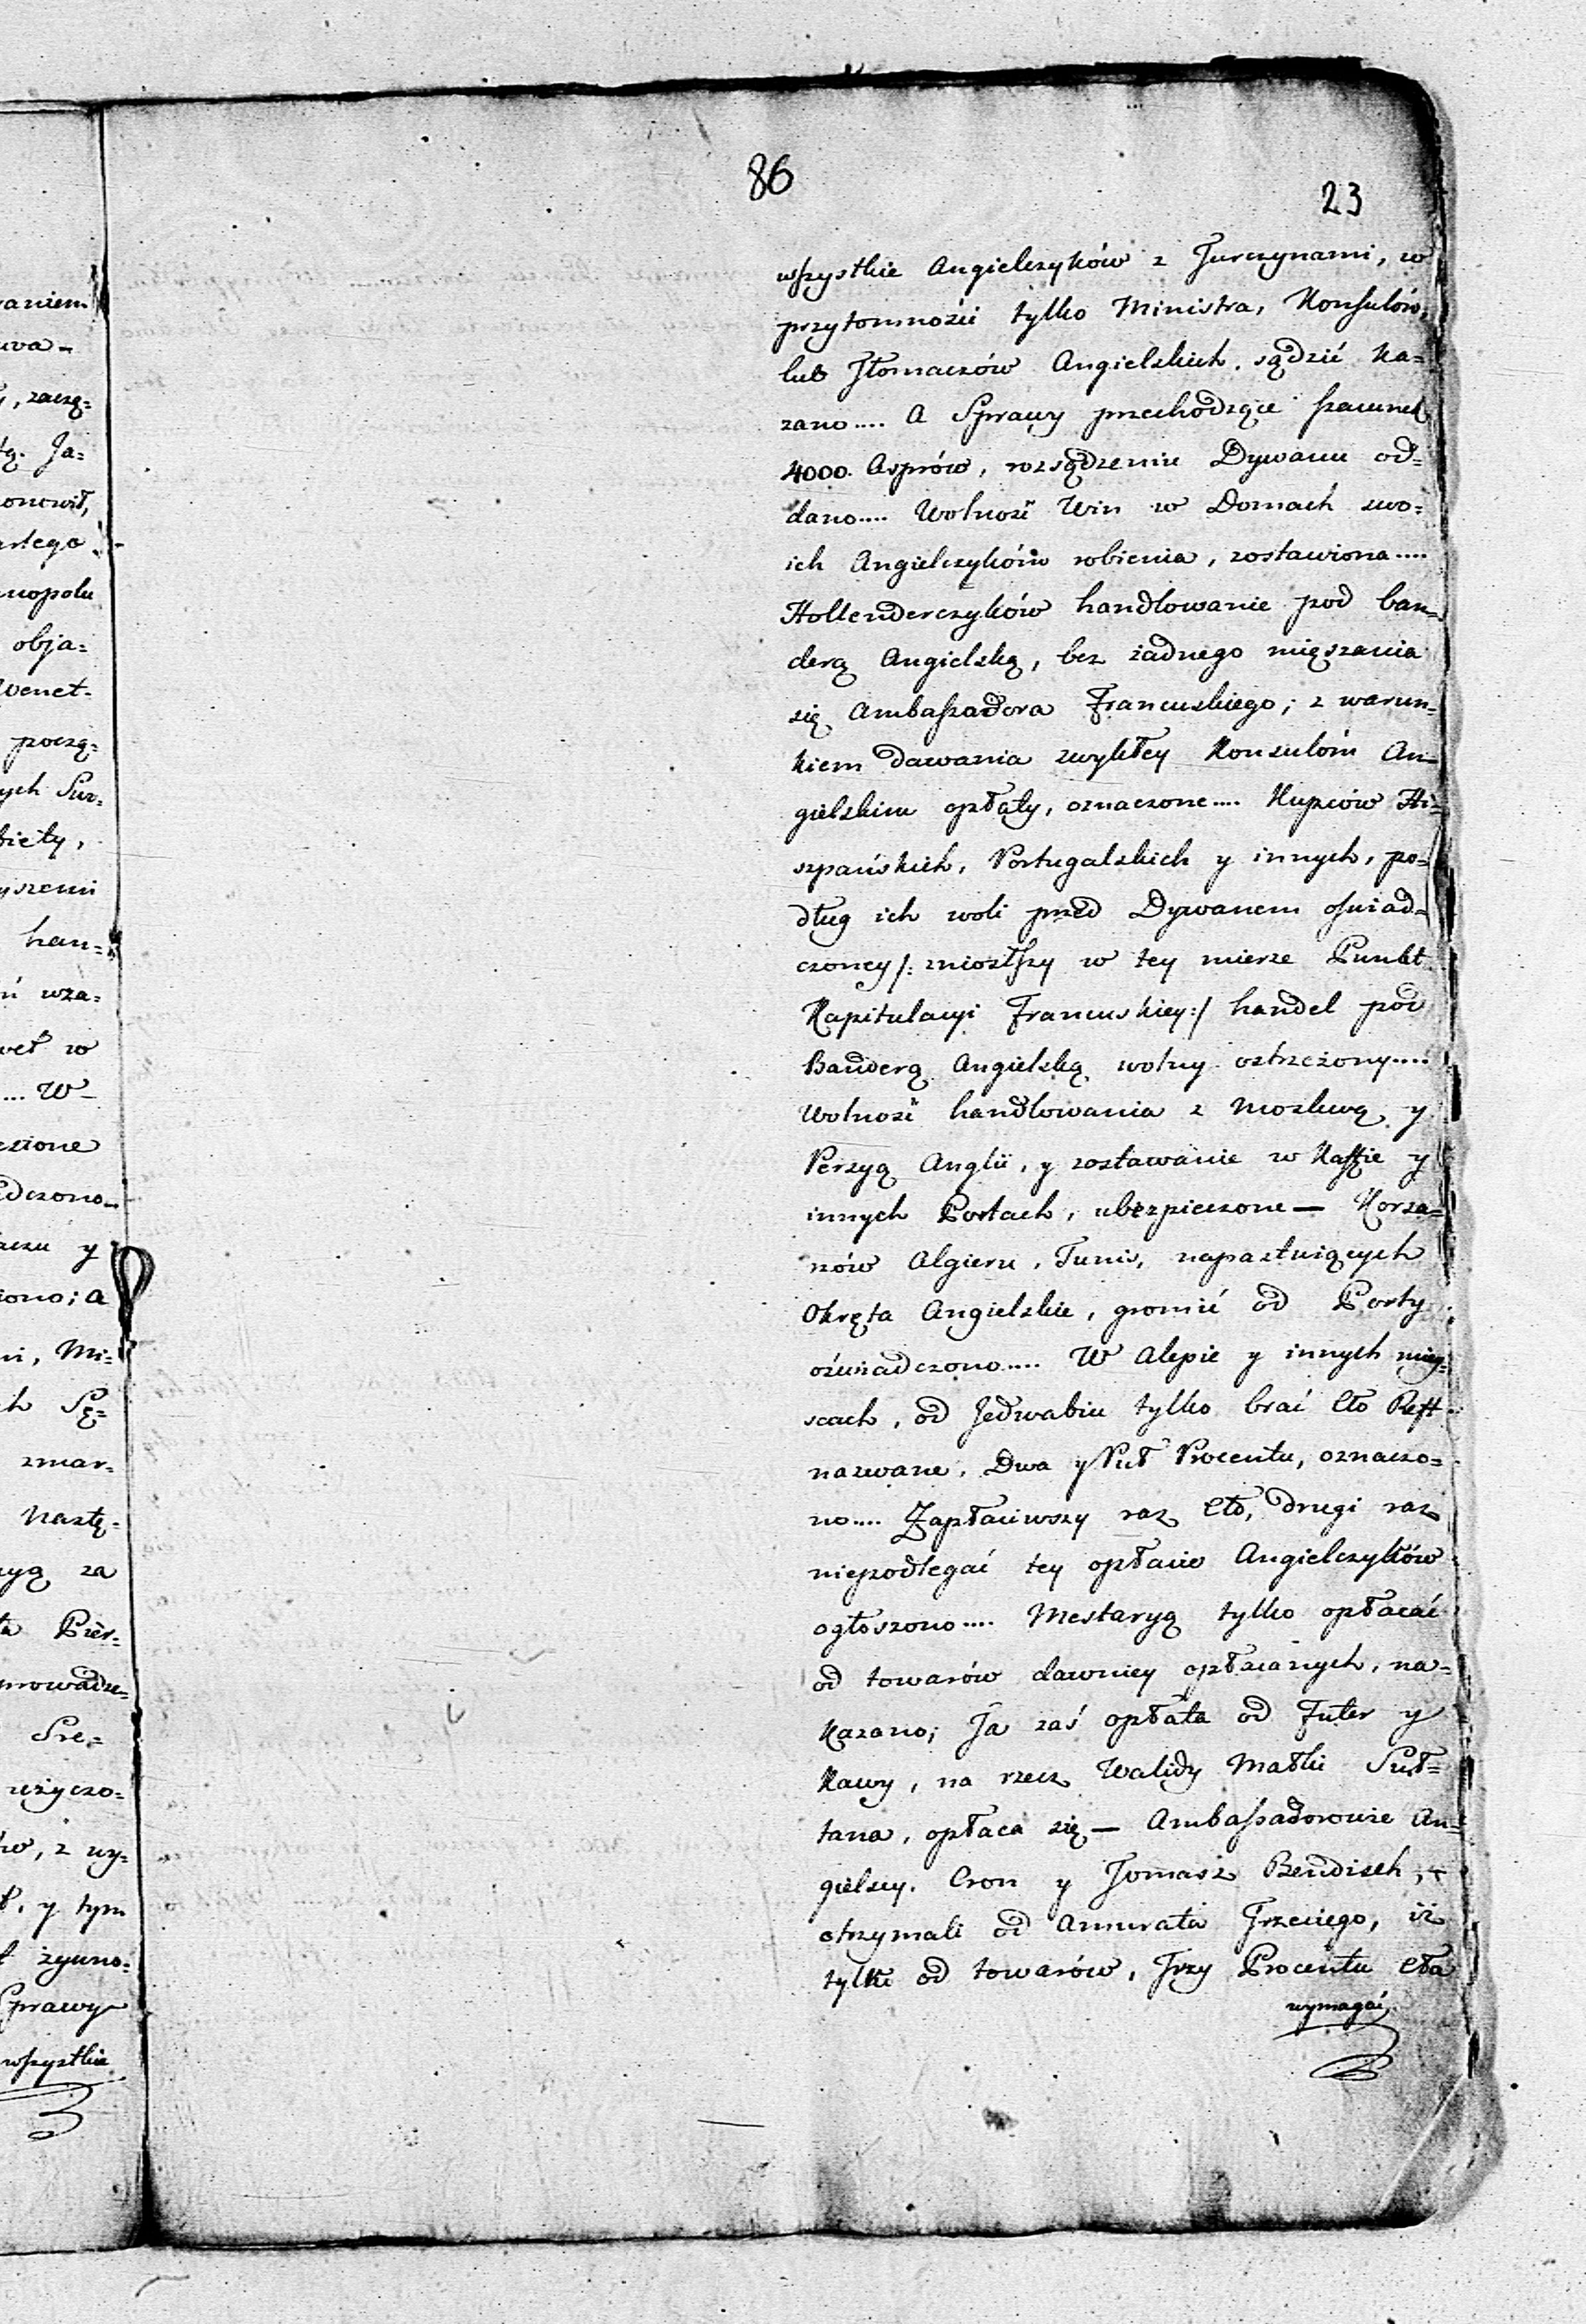 86
23
wszystkie Angielczyków z Turczynami, w
przytomności tylko Ministra, Konsulów,
lub Tłomaczów Angielskich, sądzić ka=
zano.... A Sprawy przechodzące szacunek
4000. Asprów, rozsądzeniu Dywanu od=
dano.... Wolność Win w Domach swo=
ich Angielczyków robienia, zostawiona....
Hollenderczyków handlowanie pod ban=
derą Angielską, bez żadnego mięszania
się Ambassadora Francuskiego; z warun=
kiem dawania zwykłey Konsulóm An=
gielskim opłaty, oznaczone.... Kupców Hi=
szpańskich, Portugalskich y innych, po=
dług ich woli przed Dywanem oświad=
czoney /: zniosłszy w tey mierze Punkt
Kapitulacyi Francuskiey :/ handel pod
Banderą Angielską wolny ostrzeżony....
Wolność handlowania z Moskwą y
Persyą Anglii, y zostawanie w Kaffie y
innych Portach, ubezpieczone — Korsa=
rzów Algieru, Tunis, napastuiących
Okręta Angielskie, gromić od Porty
oświadczono.... W Alepie y innych miey=
scach, od Jedwabiu tylko brać Cło Reft
nazwane, Dwa y Puł Procentu, oznaczo=
no.... Zapłaciwszy raz Cło, drugi raz
niepodlegać tey opłacie Angielczyków
ogłoszono.... Mestaryą tylko opłacać
od towarów dawniey opłacanych, na=
kazano; Ta zaś opłata od Futer y
Kawy, na rzecz Walidy Matki Suł=
tana, opłaca się — Ambassadorowie An=
gielscy. Cron y Tomasz Bendisch,
otrzymali od Amurata Trzeciego, iż
tylko od towarów, Trzy Procentu Cła
wymagać
raniem
uwa-
, zaczę=
tą. Ja=
onowił,
nopolu
obja=
Wenet=
poczę=
ych Suk=
biety,
yszemi
han=
wza=
w
.... W-
czione
dczono
y
iono; a
ni, Mi=
ch Sę=
zmar=
nastę=
yą za
ta Pier=
prowadze=
Sre=
użyczo=
ów, z wy=
y tym
żywno=
Sprawy
wszystkie